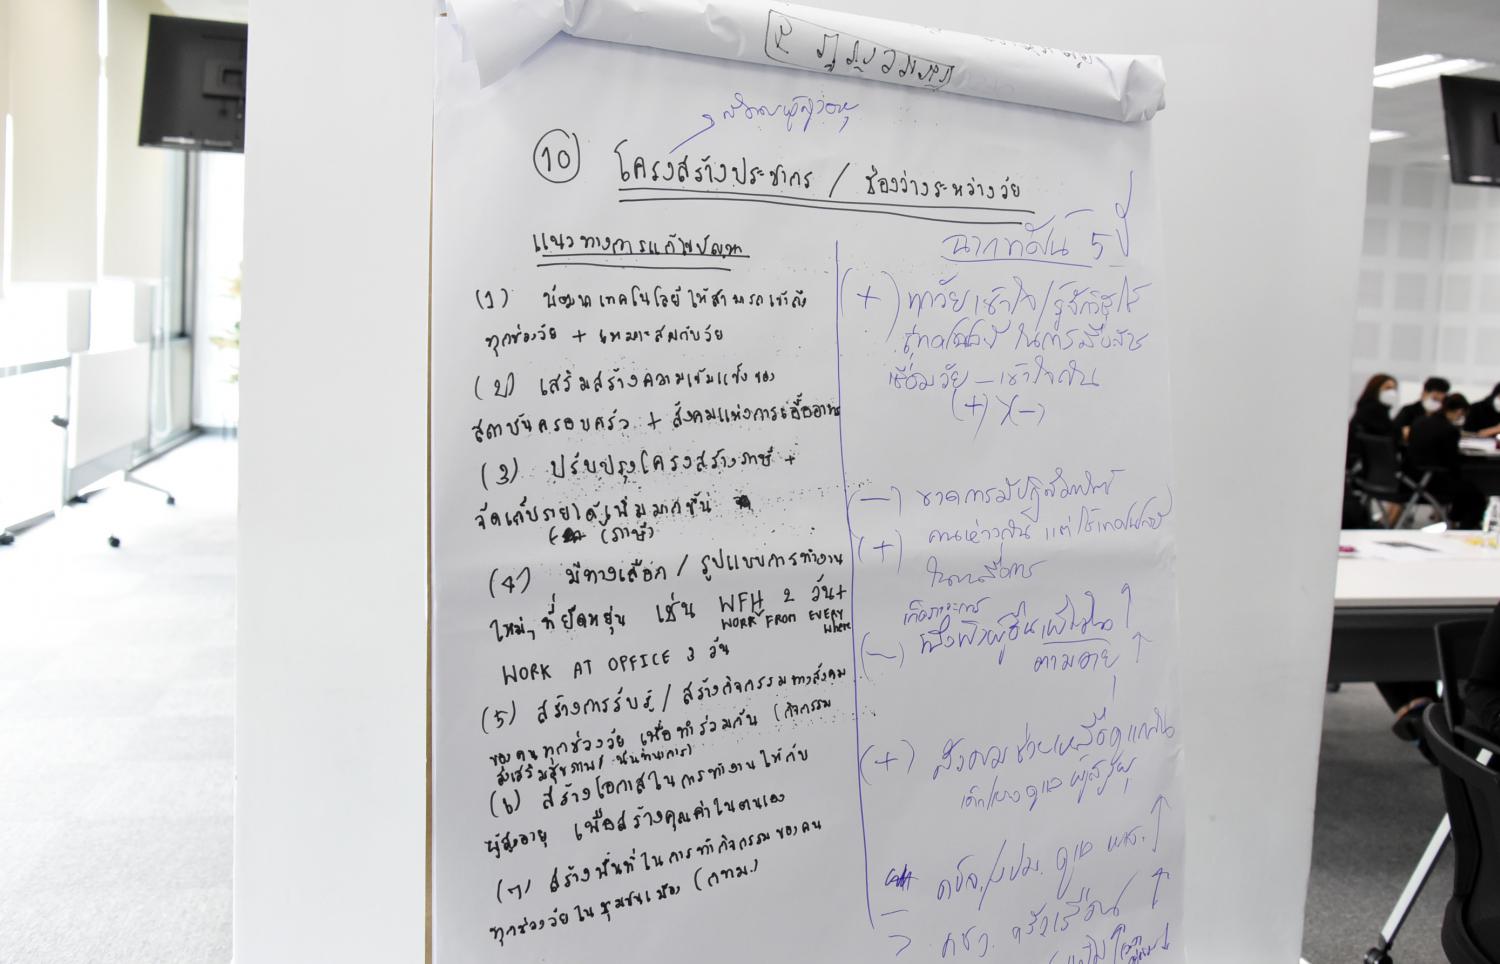 สังคมผู้สูงอายุ
10 โครงสร้างประชากร / ช่องว่างระหว่างวัย
แนวทางการแก้ไขปัญหา
(1) พัฒนาเทคโนโลยีให้สามารถเข้าถึง
ทุกช่วงวัย + เหมาะสมกับวัย
(2) เสริมสร้างความเข้มแข็งของ
สถาบันครอบครัว + สังคมแห่งการเอื้ออาทร
(3) ปรับปรุงโครงสร้างภาษี +
จัดเก็บรายได้เพิ่มมากขึ้น
(ภาษี)
(4) มีทางเลือก / รูปแบบการทำงาน
ใหม่ๆ ที่ยืดหยุ่น เช่น WFH 2 วัน+
WORK FROM EVERY
Where
WORK AT OFFICE 3 วัน
(5) สร้างการรับรู้ / สร้างกิจกรรมทางสังคม
ของคนทุกช่วงวัย เพื่อทำร่วมกัน (กิจกรรม
ส่งเสริมสุขภาพ/ นันทนาการ)
(6) สร้างโอกาสในการทำงานให้กับ
ผู้สูงอายุ เพื่อสร้างคุณค่าในตนเอง
(7) สร้างพื้นที่ในการทำกิจกรรมของคน
ทุกช่วงวัยในชุมชนเมือง (กทม.)
ฉากทัศน์ 5 ปี
(+) ทุกวัยเข้าใจ/รู้จักวิธีใช้
เทคโนโลยี ในการสื่อสาร
เชื่อมวัย – เข้าใจกัน
(+) / (-)
(-) ขาดการมีปฏิสัมพันธ์
(+) คนห่างกัน แต่ใช้เทคโนโลยี
ในการสื่อสาร
(-) พึ่งพิงผู้อื่น
ตามอายุ ↑
(+) สังคมช่วยเหลือดูแลกัน
ดูแล ผู้สูงอายุ
ดูแล ↑
ครัวเรือน ↑